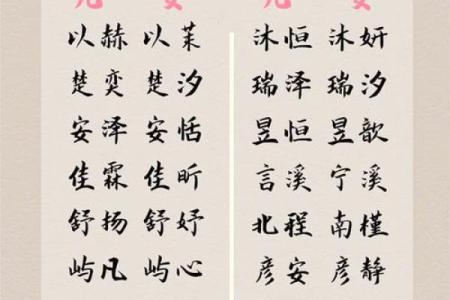 儿 女 儿 女
以赫 以茉 沐恒 沐妍
楚奕 楚汐 瑞泽 瑞汐
安泽 安恬 昱恒 昱歆
佳霖 佳昕 言溪 宁溪
舒扬 舒妤 北程 南槿
屿凡 屿心 彦安 彦静